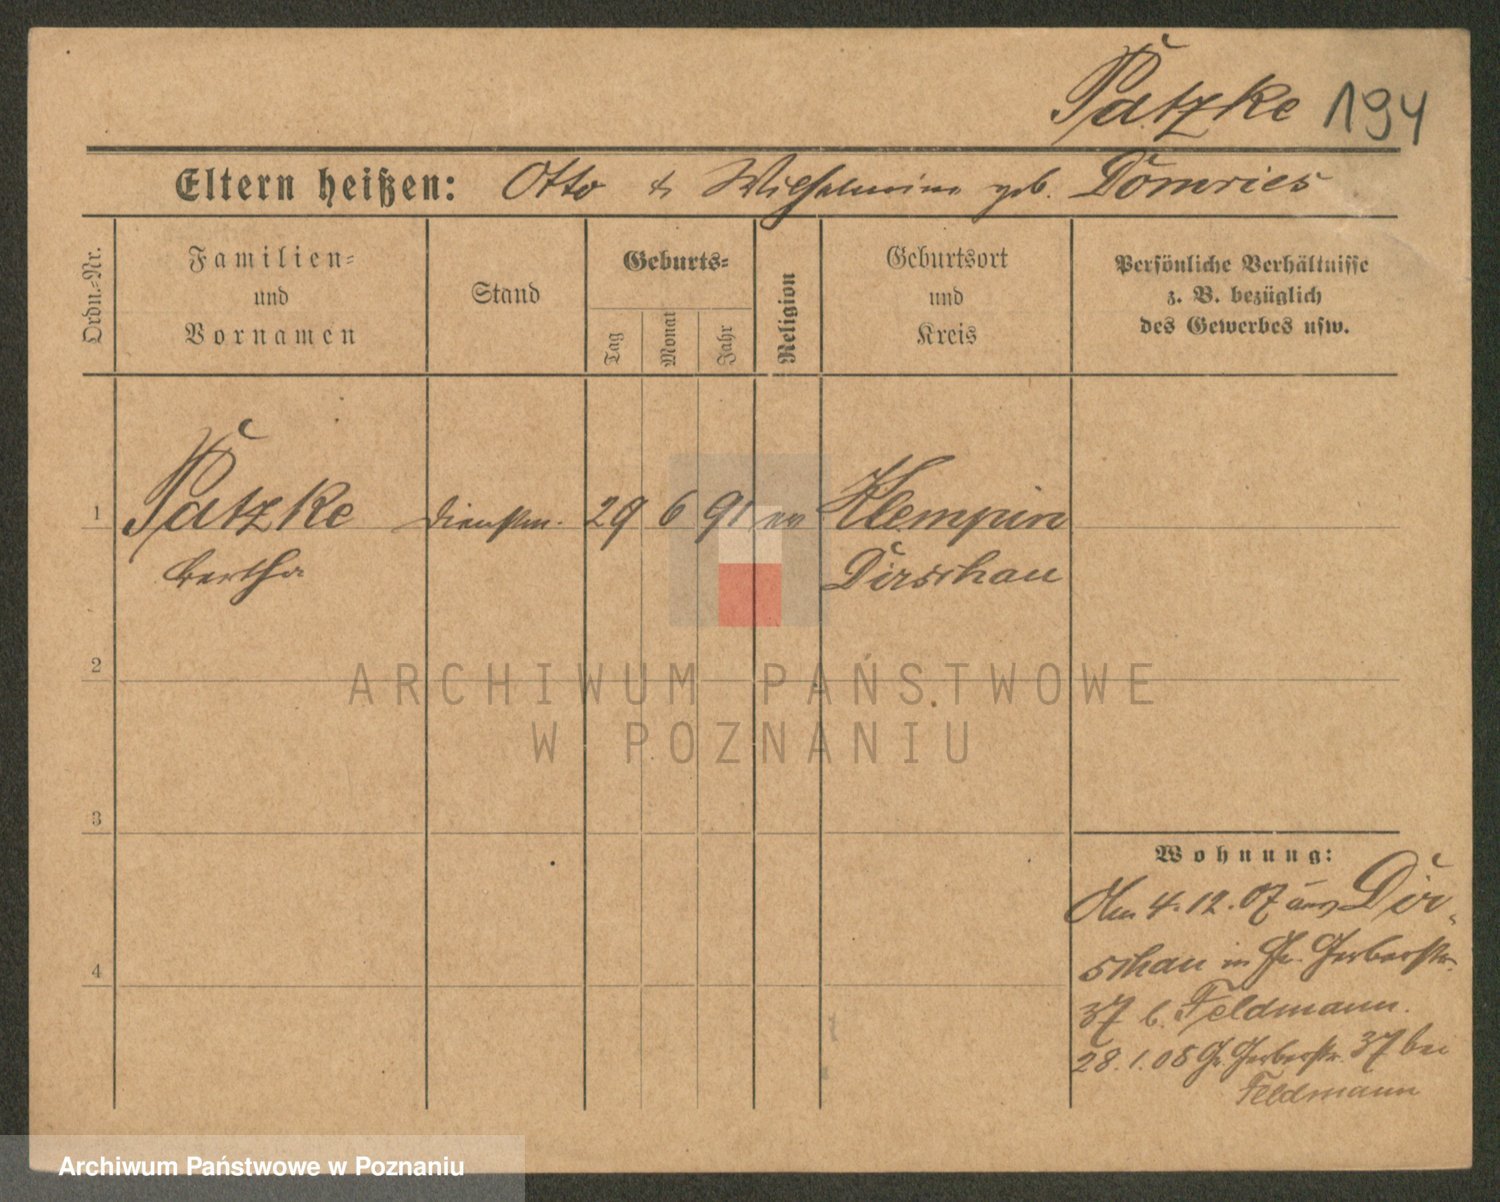 Patzke 194
Eltern heißen: Otto & Wilhelmine geb. Domries
Ordn.-Nr.
Familien-
und
Vornamen
Stand
Geburts-
Tag
Monat
Jahr
Religion
Geburtsort
und
Kreis
Persönliche Verhältnisse
z. B. bezüglich
des Gewerbes usw.
1 Patzke Dienstm. 29 6 91 ev Klempin
Bertha Dirschau
2
ARCHIWUM PAŃSTWOWE
W POZNANIU
3
Wohnung:
4.12.07 aus Dir-
schau in Gr. Gerberstr.
4
37 b. Feldmann.
28.1.08 Gr. Gerberstr. 37 bei
Feldmann
Archiwum Państwowe w Poznaniu